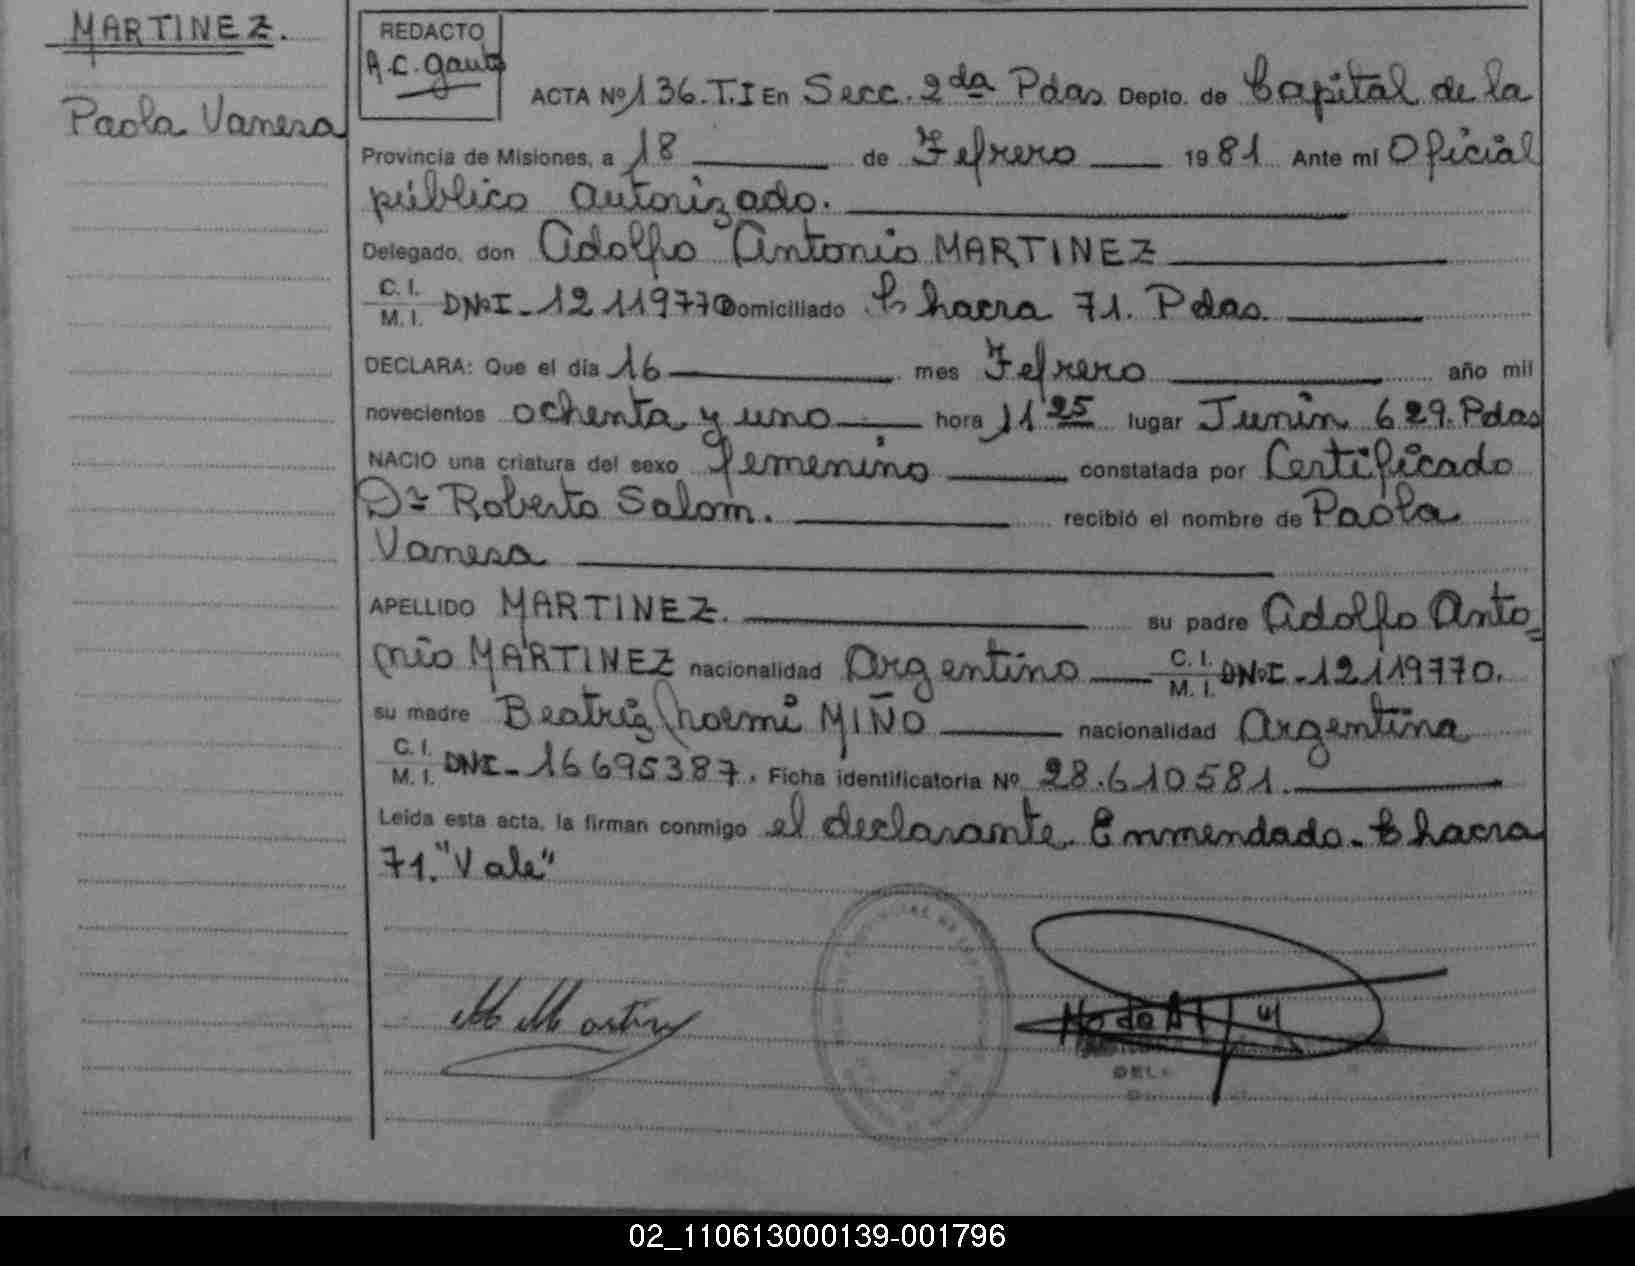 MARTINEZ.
Paola Vanesa
REDACTO
A.C. Gauto
ACTA Nº 136.T.I En Secc. 2da Pdas Depto. de Capital de la
Provincia de Misiones, a 18 de Febrero 1981 Ante mi Oficial
público autorizado.
Delegado, don Adolfo Antonio MARTINEZ
C. I.
M. I. DNI - 12119770 Domiciliado Chacra 71. Pdas.
DECLARA: Que el día 16 mes Febrero año mil
novecientos ochenta y uno hora 11 25 lugar Junin 629. Pdas
NACIO una criatura del sexo femenino constatada por Certificado
Dr Roberto Salom. recibió el nombre de Paola
Vanesa
APELLIDO MARTINEZ. su padre Adolfo Anto-
nio MARTINEZ nacionalidad Argentino C. I. M. I. DNI - 12119770.
su madre Beatriz Noemi MIÑO nacionalidad Argentina
C. I.
M. I. DNI - 16695387. Ficha identificatoria Nº 28.610581.
Leída esta acta, la firman conmigo el declarante. Enmendado - Chacra
71. "Vale"
Martinez
DEL
02_110613000139-001796